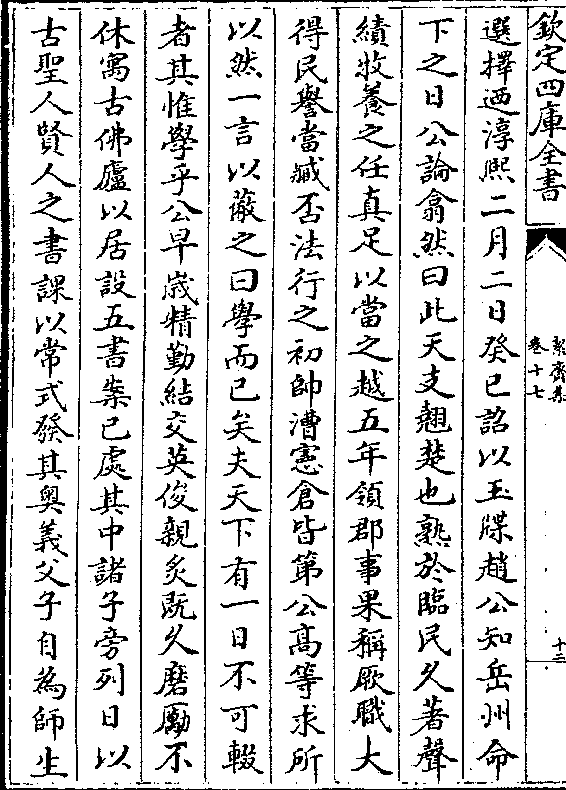 欽定四庫全書
絜齋集
卷十七
十二
選擇迺淳熙二月二日癸巳詔以玉牒趙公知岳州命
下之日公論翕然曰此天支翹楚也熟於臨民久著聲
績牧養之任真足以當之越五年領郡事果稱厥職大
得民譽當臧否法行之初帥漕憲倉皆第公高等求所
以然一言以蔽之曰學而已矣夫天下有一日不可輟
者其惟學乎公早歲精勤結交英俊親炙既久磨勵不
休寓古佛廬以居設五書案已處其中諸子旁列日以
古聖人賢人之書課以常式發其奥義父子自為師生